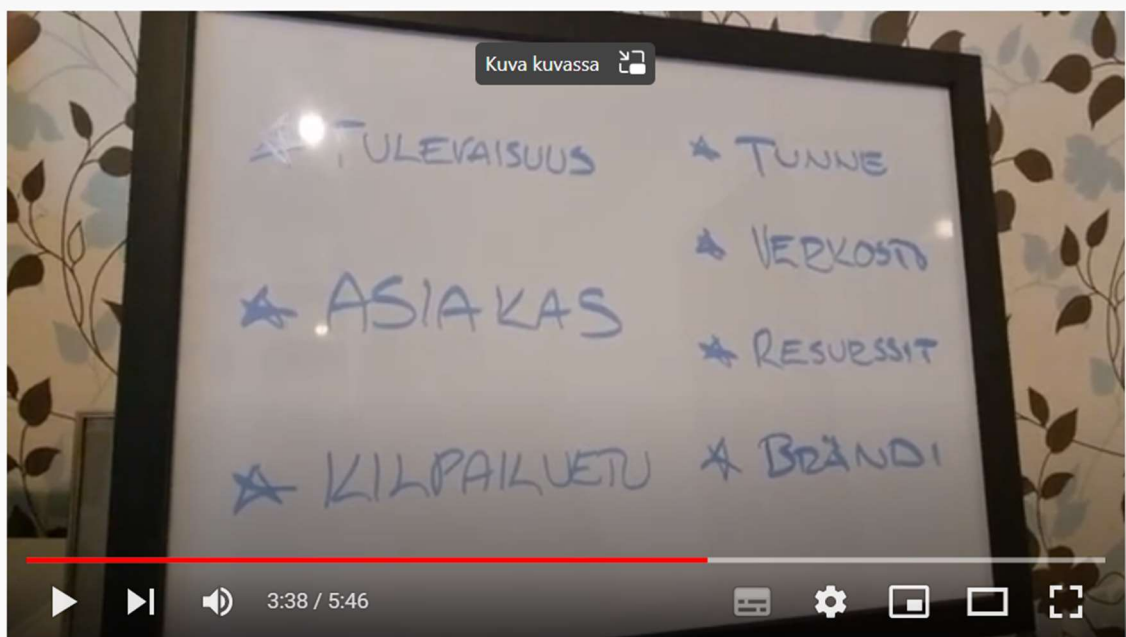 Kuva kuvassa
TULEVAISUUS
ASIAKAS
KILPAILUETU
TUNNE
VERKOSTO
RESURSSIT
BRÄNDI
3:38 / 5:46